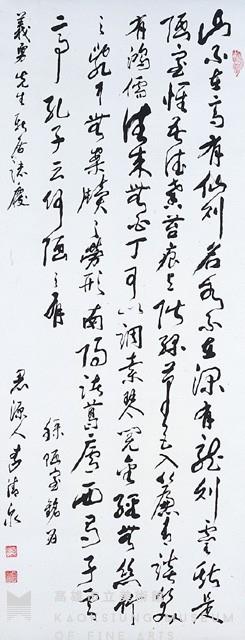 山不在高有仙則名水不在深有龍則靈斯是
陋室惟吾德馨苔痕上階綠草色入簾青談笑
有鴻儒往來無白丁可以調素琴閱金經無絲竹
之亂耳無案牘之勞形南陽諸葛廬西蜀子雲
亭孔子云何陋之有
錄陋室銘為
義勇先生新居誌慶
思源人李清泉
高雄市立美術館
KAOHSIUNG MUSEUM
OF FINE ARTS